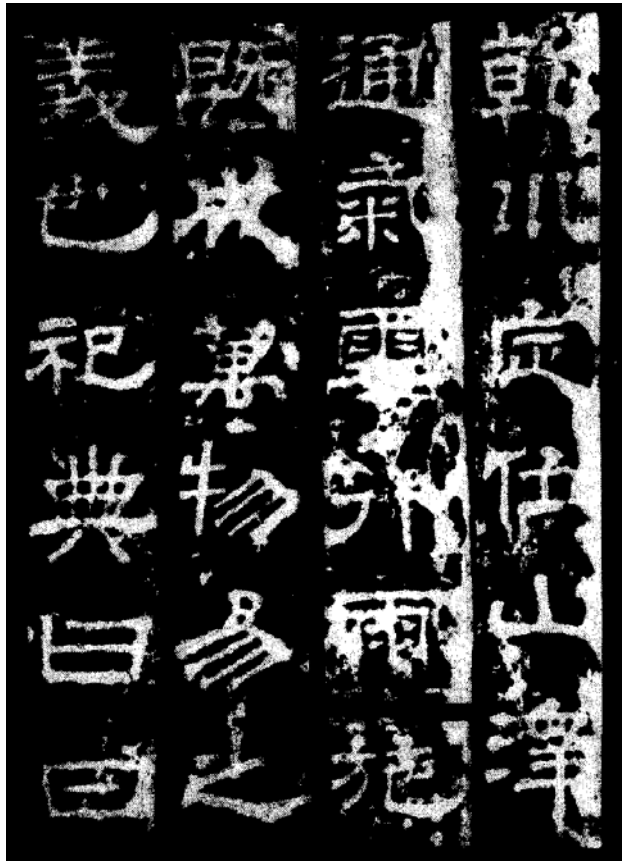 乾川定位山澤
通氣雲行雨施
既成萬物易之
義也祀典曰日